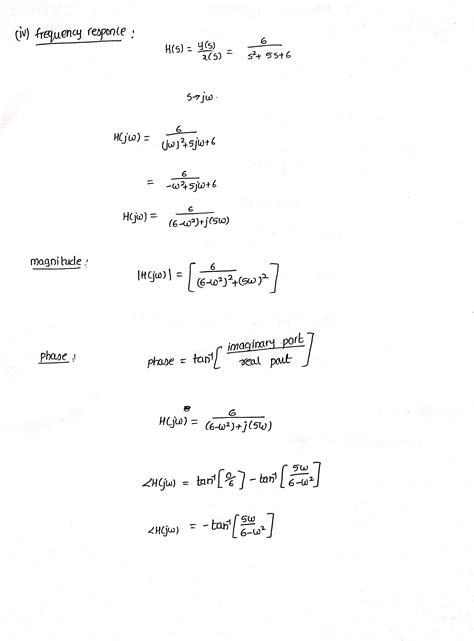 (iv) frequency responce :
H(s) = y(s)/x(s) = 6/(s²+5s+6)
s→jω.
H(jω) = 6/((jω)²+5jω+6)
= 6/(-ω²+5jω+6)
H(jω) = 6/((6-ω²)+j(5ω))
magnitude :
|H(jω)| = [6/((6-ω²)²+(5ω)²)]
phase :
phase = tan⁻¹[imaginary part/real part]
H(jω) = 6/((6-ω²)+j(5ω))
∠H(jω) = tan⁻¹[0/6] - tan⁻¹[5ω/(6-ω²)]
∠H(jω) = -tan⁻¹[5ω/(6-ω²)]